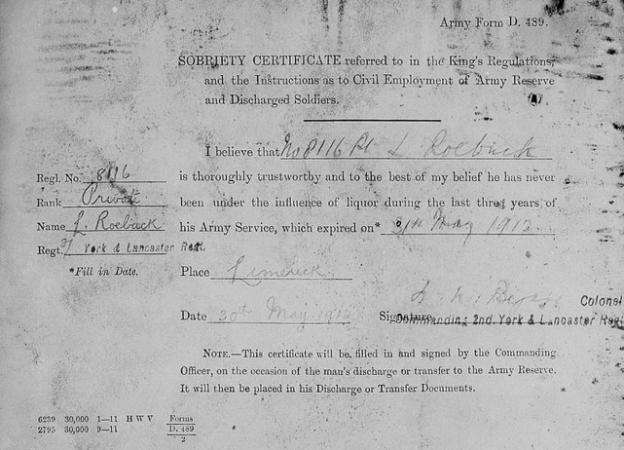 Army Form D. 489.
SOBRIETY CERTIFICATE referred to in the King's Regulations,
and the Instructions as to Civil Employment of Army Reserve
and Discharged Soldiers.
I believe that No 8116 Pt Roebuck
is thoroughly trustworthy and to the best of my belief he has never
been under the influence of liquor during the last three years of
his Army Service, which expired on* 31st May 1912.
Regl. No. 8116
Rank Private
Name J. Roebuck
Regt. 2/ York & Lancaster Regt.
*Fill in Date.
Place Limerick
Date 30th May 1912
Signature
Colonel
Commanding 2nd. York & Lancaster Regt
NOTE.—This certificate will be filled in and signed by the Commanding
Officer, on the occasion of the man's discharge or transfer to the Army Reserve.
It will then be placed in his Discharge or Transfer Documents.
6239 30,000 1—11 H W V
2795 30,000 9—11
Forms
D. 489
2